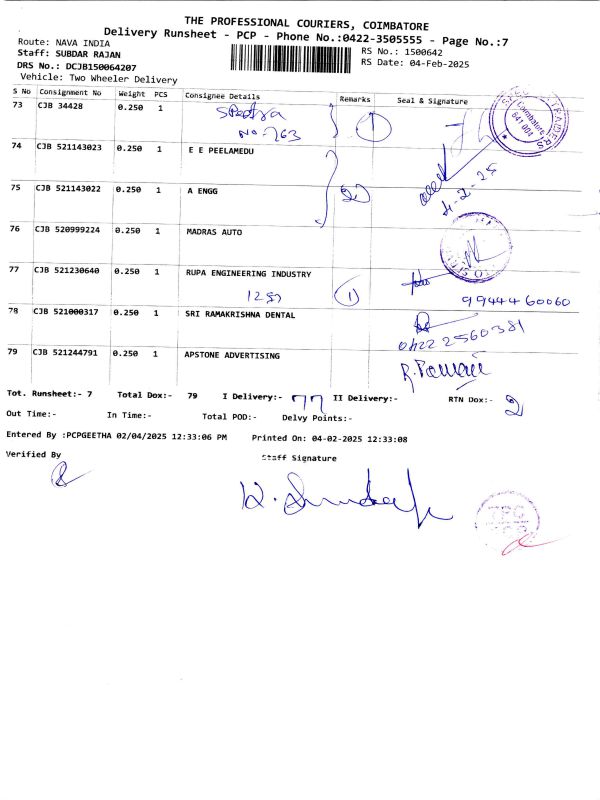 THE PROFESSIONAL COURIERS, COIMBATORE
Delivery Runsheet - PCP - Phone No.:0422-3505555 - Page No.:7
Route: NAVA INDIA
Staff: SUBDAR RAJAN
RS No.: 1500642
DRS No.: DCJB150064207
RS Date: 04-Feb-2025
Vehicle: Two Wheeler Delivery
S No Consignment No Weight PCS Consignee Details Remarks Seal & Signature
73 CJB 34428 0.250 1
No. 763 1
Coimbatore 641 004
74 CJB 521143023 0.250 1 E E PEELAMEDU
75 CJB 521143022 0.250 1 A ENGG 2
4-2-25
76 CJB 520999224 0.250 1 MADRAS AUTO
77 CJB 521230640 0.250 1 RUPA ENGINEERING INDUSTRY
1
99444 60060
78 CJB 521000317 0.250 1 SRI RAMAKRISHNA DENTAL
0422 2560381
79 CJB 521244791 0.250 1 APSTONE ADVERTISING
Tot. Runsheet:- 7 Total Dox:- 79 I Delivery:- 77 II Delivery:- RTN Dox:- 2
Out Time:- In Time:- Total POD:- Delvy Points:-
Entered By :PCPGEETHA 02/04/2025 12:33:06 PM Printed On: 04-02-2025 12:33:08
Verified By Staff Signature